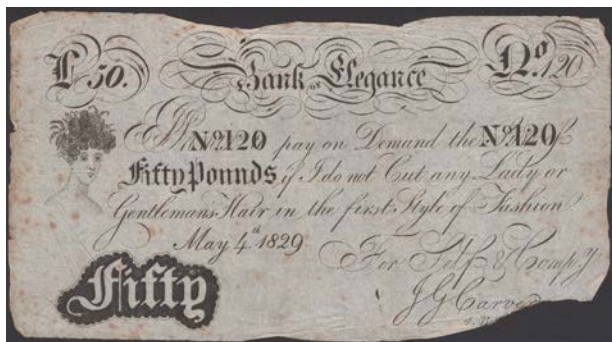 £50. Bank of Elegance No. 120
I Promise to pay on Demand the Sum of
No. 120 No. 120
Fifty Pounds if I do not Cut any Lady or
Gentlemans Hair in the first Style of Fashion
May 4th 1829
For Self & Compy.
Fifty J G Carver